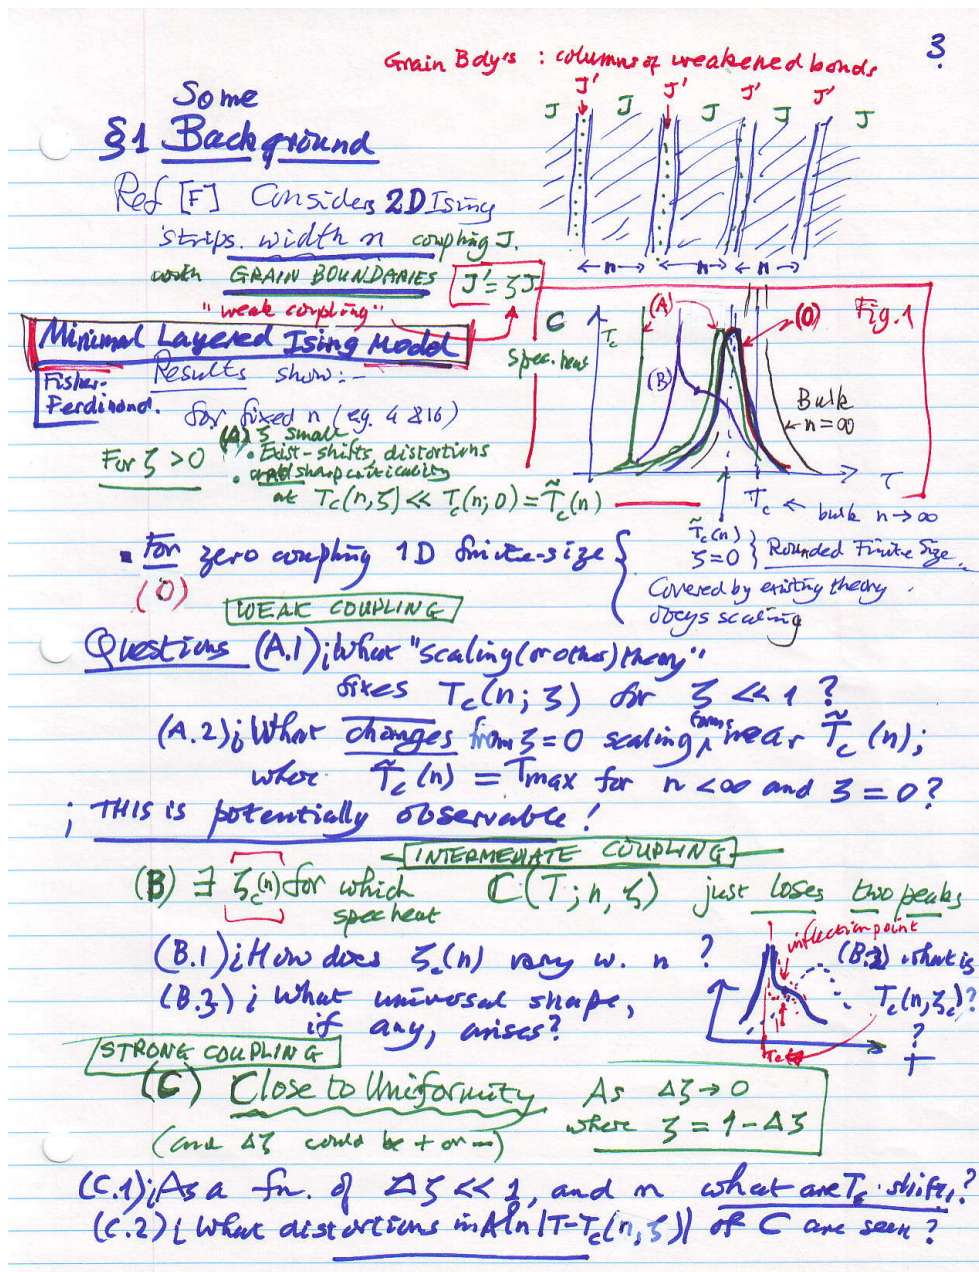 3
Grain Bdy's : columns of weakened bonds
J' J' J' J'
J J J J J
Some
§1 Background
Ref [F] Considers 2D Ising
strips. width n coupling J.
with GRAIN BOUNDARIES
J' = ζJ
"weak coupling"
←n→ ←n→ ←n→
Minimal Layered Ising Model
Fisher-
Ferdinand.
Results show:-
for fixed n (eg. 4 & 16)
For ζ > 0
(A) ζ small
• Exist-shifts, distortions
• and sharp criticality
at Tc(n,ζ) << Tc(n;0) = T̃c(n)
C
Spec. heat
Tc
(A)
(B)
(0)
Fig.1
Bulk
n=∞
T
Tc ← bulk n→∞
T̃c(n)
ζ=0 } Rounded Finite Size
▪ For zero coupling 1D finite-size
(0)
Covered by existing theory.
obeys scaling
WEAK COUPLING
Questions (A.1) ¿What "scaling (or other) theory"
fixes Tc(n; ζ) for ζ << 1 ?
(A.2) ¿ What changes from ζ=0 scaling forms near T̃c(n);
where T̃c(n) = Tmax for n <∞ and ζ = 0?
¡ THIS is potentially observable!
INTERMEDIATE COUPLING
(B) ∃ ζc(n) for which C(T; n, ζ) just loses two peaks
spec heat
(B.1) ¿How does ζc(n) vary w. n ?
inflection point
(B.2) what is
Tc(n,ζc)?
(B.3) ¿ What universal shape,
if any, arises?
Tc
?
T
STRONG COUPLING
(C) Close to Uniformity As Δζ→0
(and Δζ could be + or −) where ζ = 1−Δζ
(C.1) ¿As a fn. of Δζ << 1, and n what are Tc shifts?
(C.2) ¿What distortions in A ln |T−Tc(n,ζ)| of C are seen?